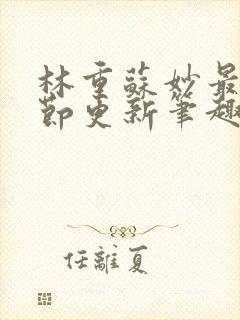 林重蘇妙最
節更新筆趣
任離夏